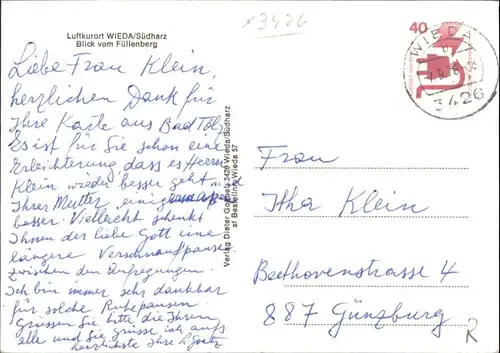 x3426
Luftkurort WIEDA/Südharz
Blick vom Füllenberg
Liebe Frau Klein,
herzlichen Dank für
Ihre Karte aus Bad Tölz
Es ist für Sie schon eine
Erleichterung, dass es Herrn
Klein wieder besser geht und
Ihrer Mutter
besser. Vielleicht schenkt
Ihnen der liebe Gott eine
längere Verschnaufpause
zwischen den Aufregungen.
Ich bin immer sehr dankbar
für solche Ruhepausen.
Grüssen Sie bitte die Ihren
alle und Sie grüsse ich aufs
herzlichste Ihre
Verlag Dieter 3426 Wieda/Südharz
Bestellnr. Wieda 57
40
WIEDA
3426
Frau
Itha Klein
Beethovenstrasse 4
887 Günzburg
R